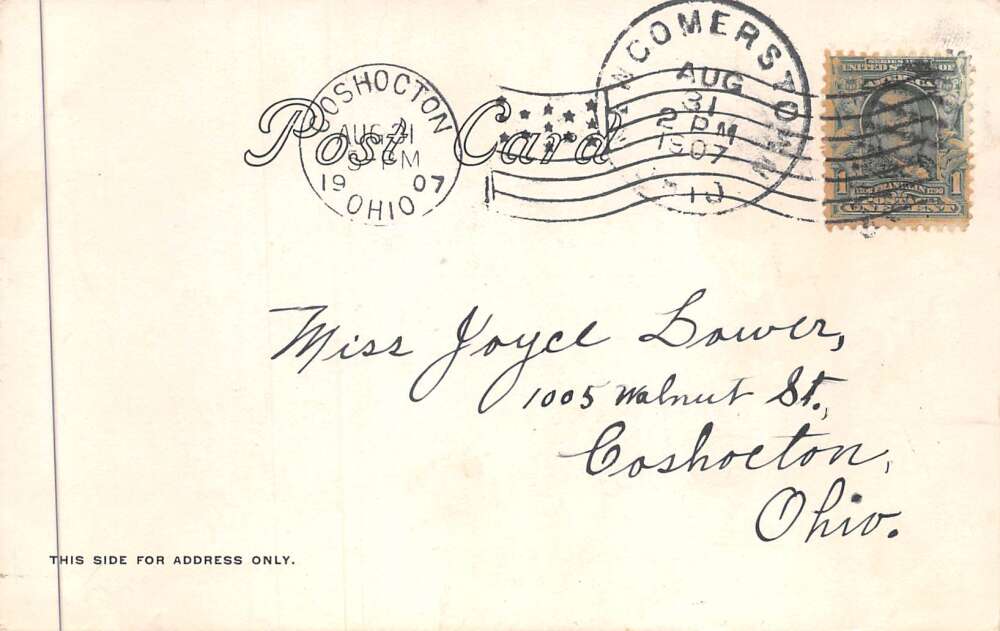 Post Card
COSHOCTON
AUG 31
PM
19 07
OHIO
NCOMERSTOWN
AUG
31
2 PM
1907
SERIES 1902
UNITED STATES OF
AMERICA
1 FRANKLIN 1
POSTAGE
ONE CENT
Miss Joyce Lower,
1005 Walnut St.,
Coshocton,
Ohio.
THIS SIDE FOR ADDRESS ONLY.